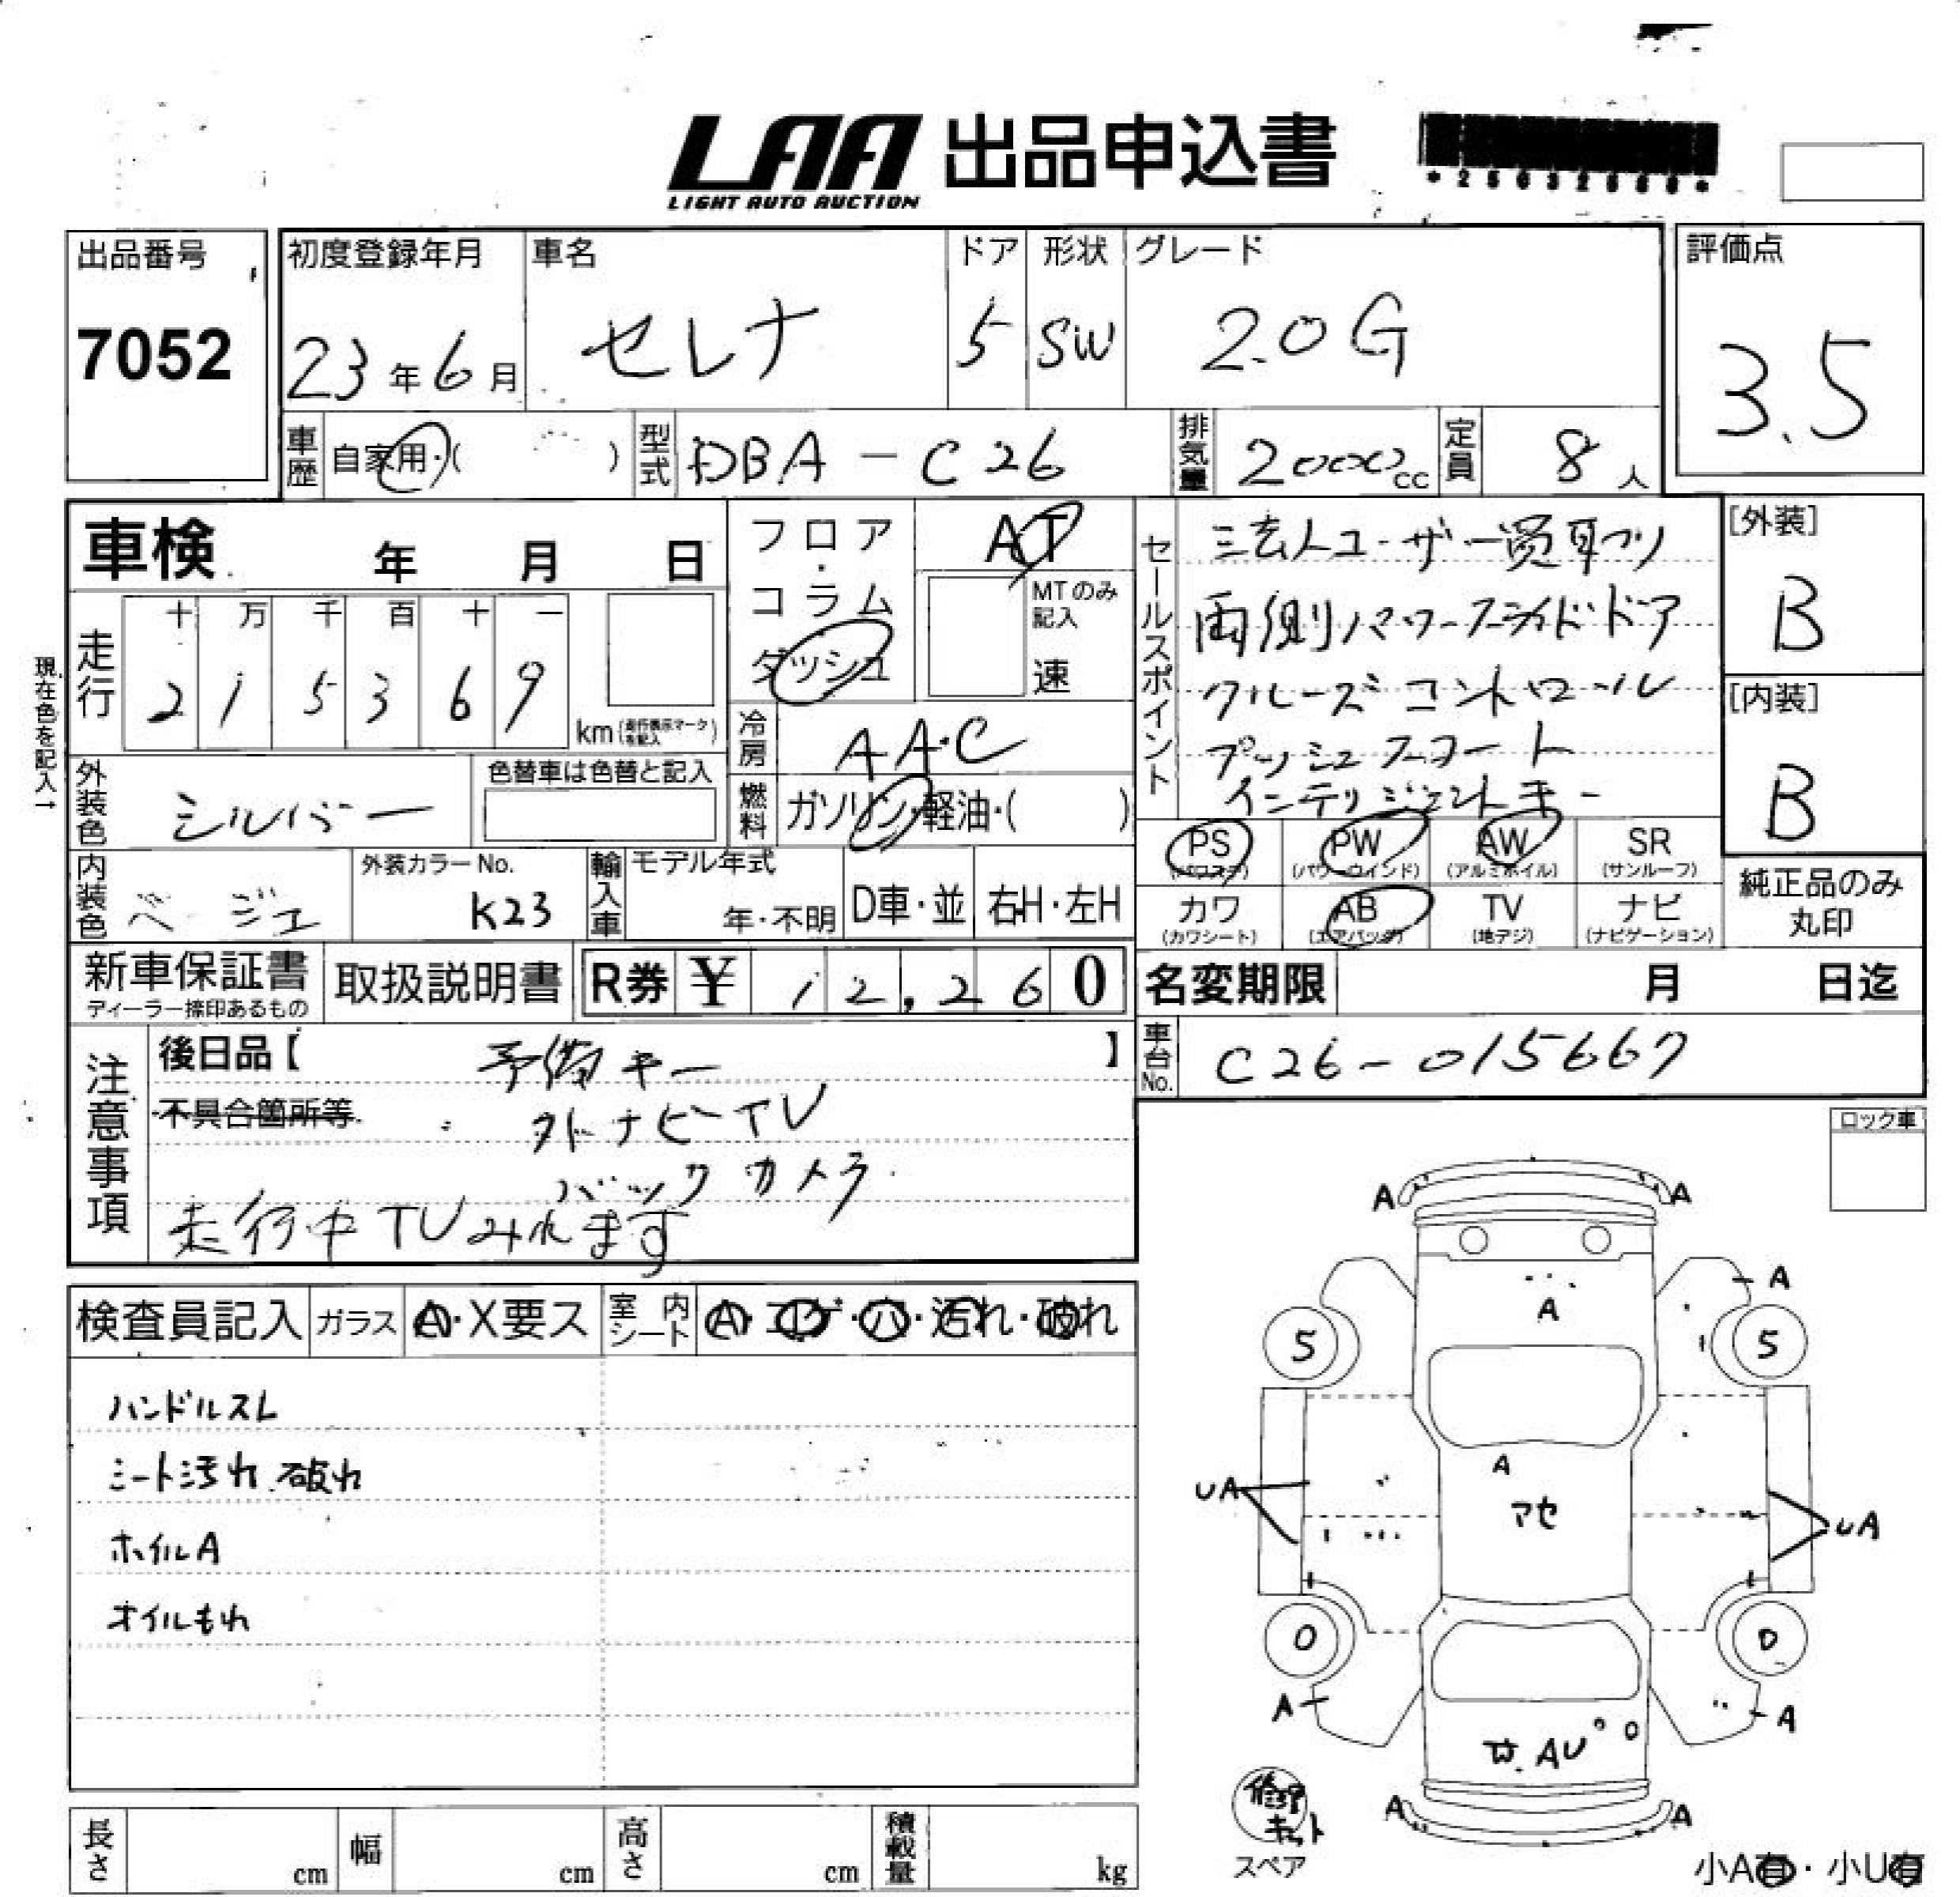 LAA 出品申込書
LIGHT AUTO AUCTION
出品番号
7052
初度登録年月
23年6月
車名
セレナ
ドア
5
形状
SW
グレード
2.0G
評価点
3.5
車歴 自家用・( )
型式 DBA-C26
排気量 2000cc
定員 8人
車検 年 月 日
フロア・コラム ダッシュ
AT
MTのみ記入
速
現在色を記入→
走行
十 万 千 百 十 一
2 1 5 3 6 9
km(走行表示マークを記入)
冷房 AAC
燃料 ガソリン・軽油・( )
外装色 シルバー
色替車は色替と記入
内装色 ベージュ
外装カラーNo.
K23
輸入車
モデル年式
年・不明
D車・並
右H・左H
セールスポイント
法人ユーザー買取り
両側パワースライドドア
クルーズコントロール
プッシュスタート
インテリジェントキー
[外装]
B
[内装]
B
PS PW AW SR
(パワステ) (パワーウインド) (アルミホイル) (サンルーフ)
カワ AB TV ナビ
(カワシート) (エアバッグ) (地デジ) (ナビゲーション)
純正品のみ
丸印
新車保証書
ディーラー捺印あるもの
取扱説明書
R券 ¥ 12,260
名変期限 月 日迄
車台No. C26-015667
注意事項
後日品【 予備キー 】
不具合箇所等
外ナビーTV
バックカメラ
走行中TVみれます
ロック車
検査員記入 ガラス A・X要ス 室内シート A・コゲ・穴・汚れ・破れ
ハンドルスレ
シート汚れ 破れ
ホイルA
オイルもれ
A A
A
A
5 5
A
UA
アセ
UA
0 0
A
A
サ.AU
A A
修理キット
スペア
小A有・小U有
長さ cm 幅 cm 高さ cm 積載量 kg